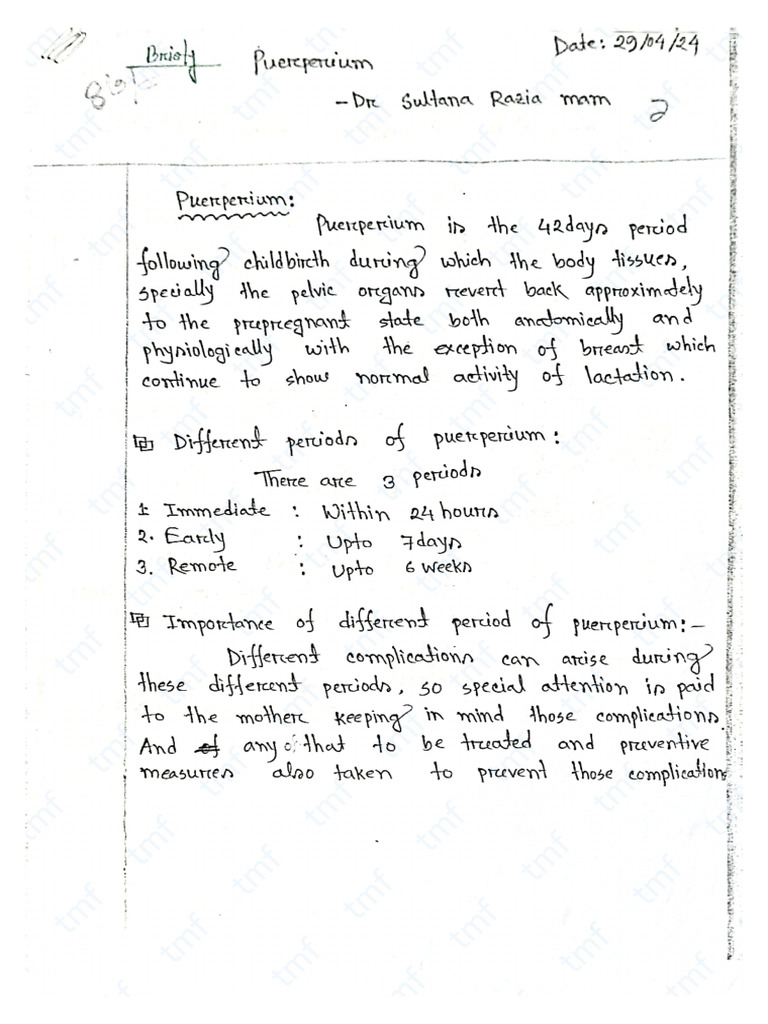 Briefly Puerperium Date: 29/04/24
- Dr Sultana Razia mam 2
Puerperium:
Puerperium is the 42days period
following childbirth during which the body tissues,
specially the pelvic organs revert back approximately
to the prepregnant state both anatomically and
physiologically with the exception of breast which
continue to show normal activity of lactation.
Different periods of puerperium:
There are 3 periods
1. Immediate : Within 24 hours
2. Early : Upto 7days
3. Remote : Upto 6 weeks
Importance of different period of puerperium:-
Different complications can arise during
these different periods, so special attention is paid
to the mother keeping in mind those complications.
And of any of that to be treated and preventive
measures also taken to prevent those complications
tmf